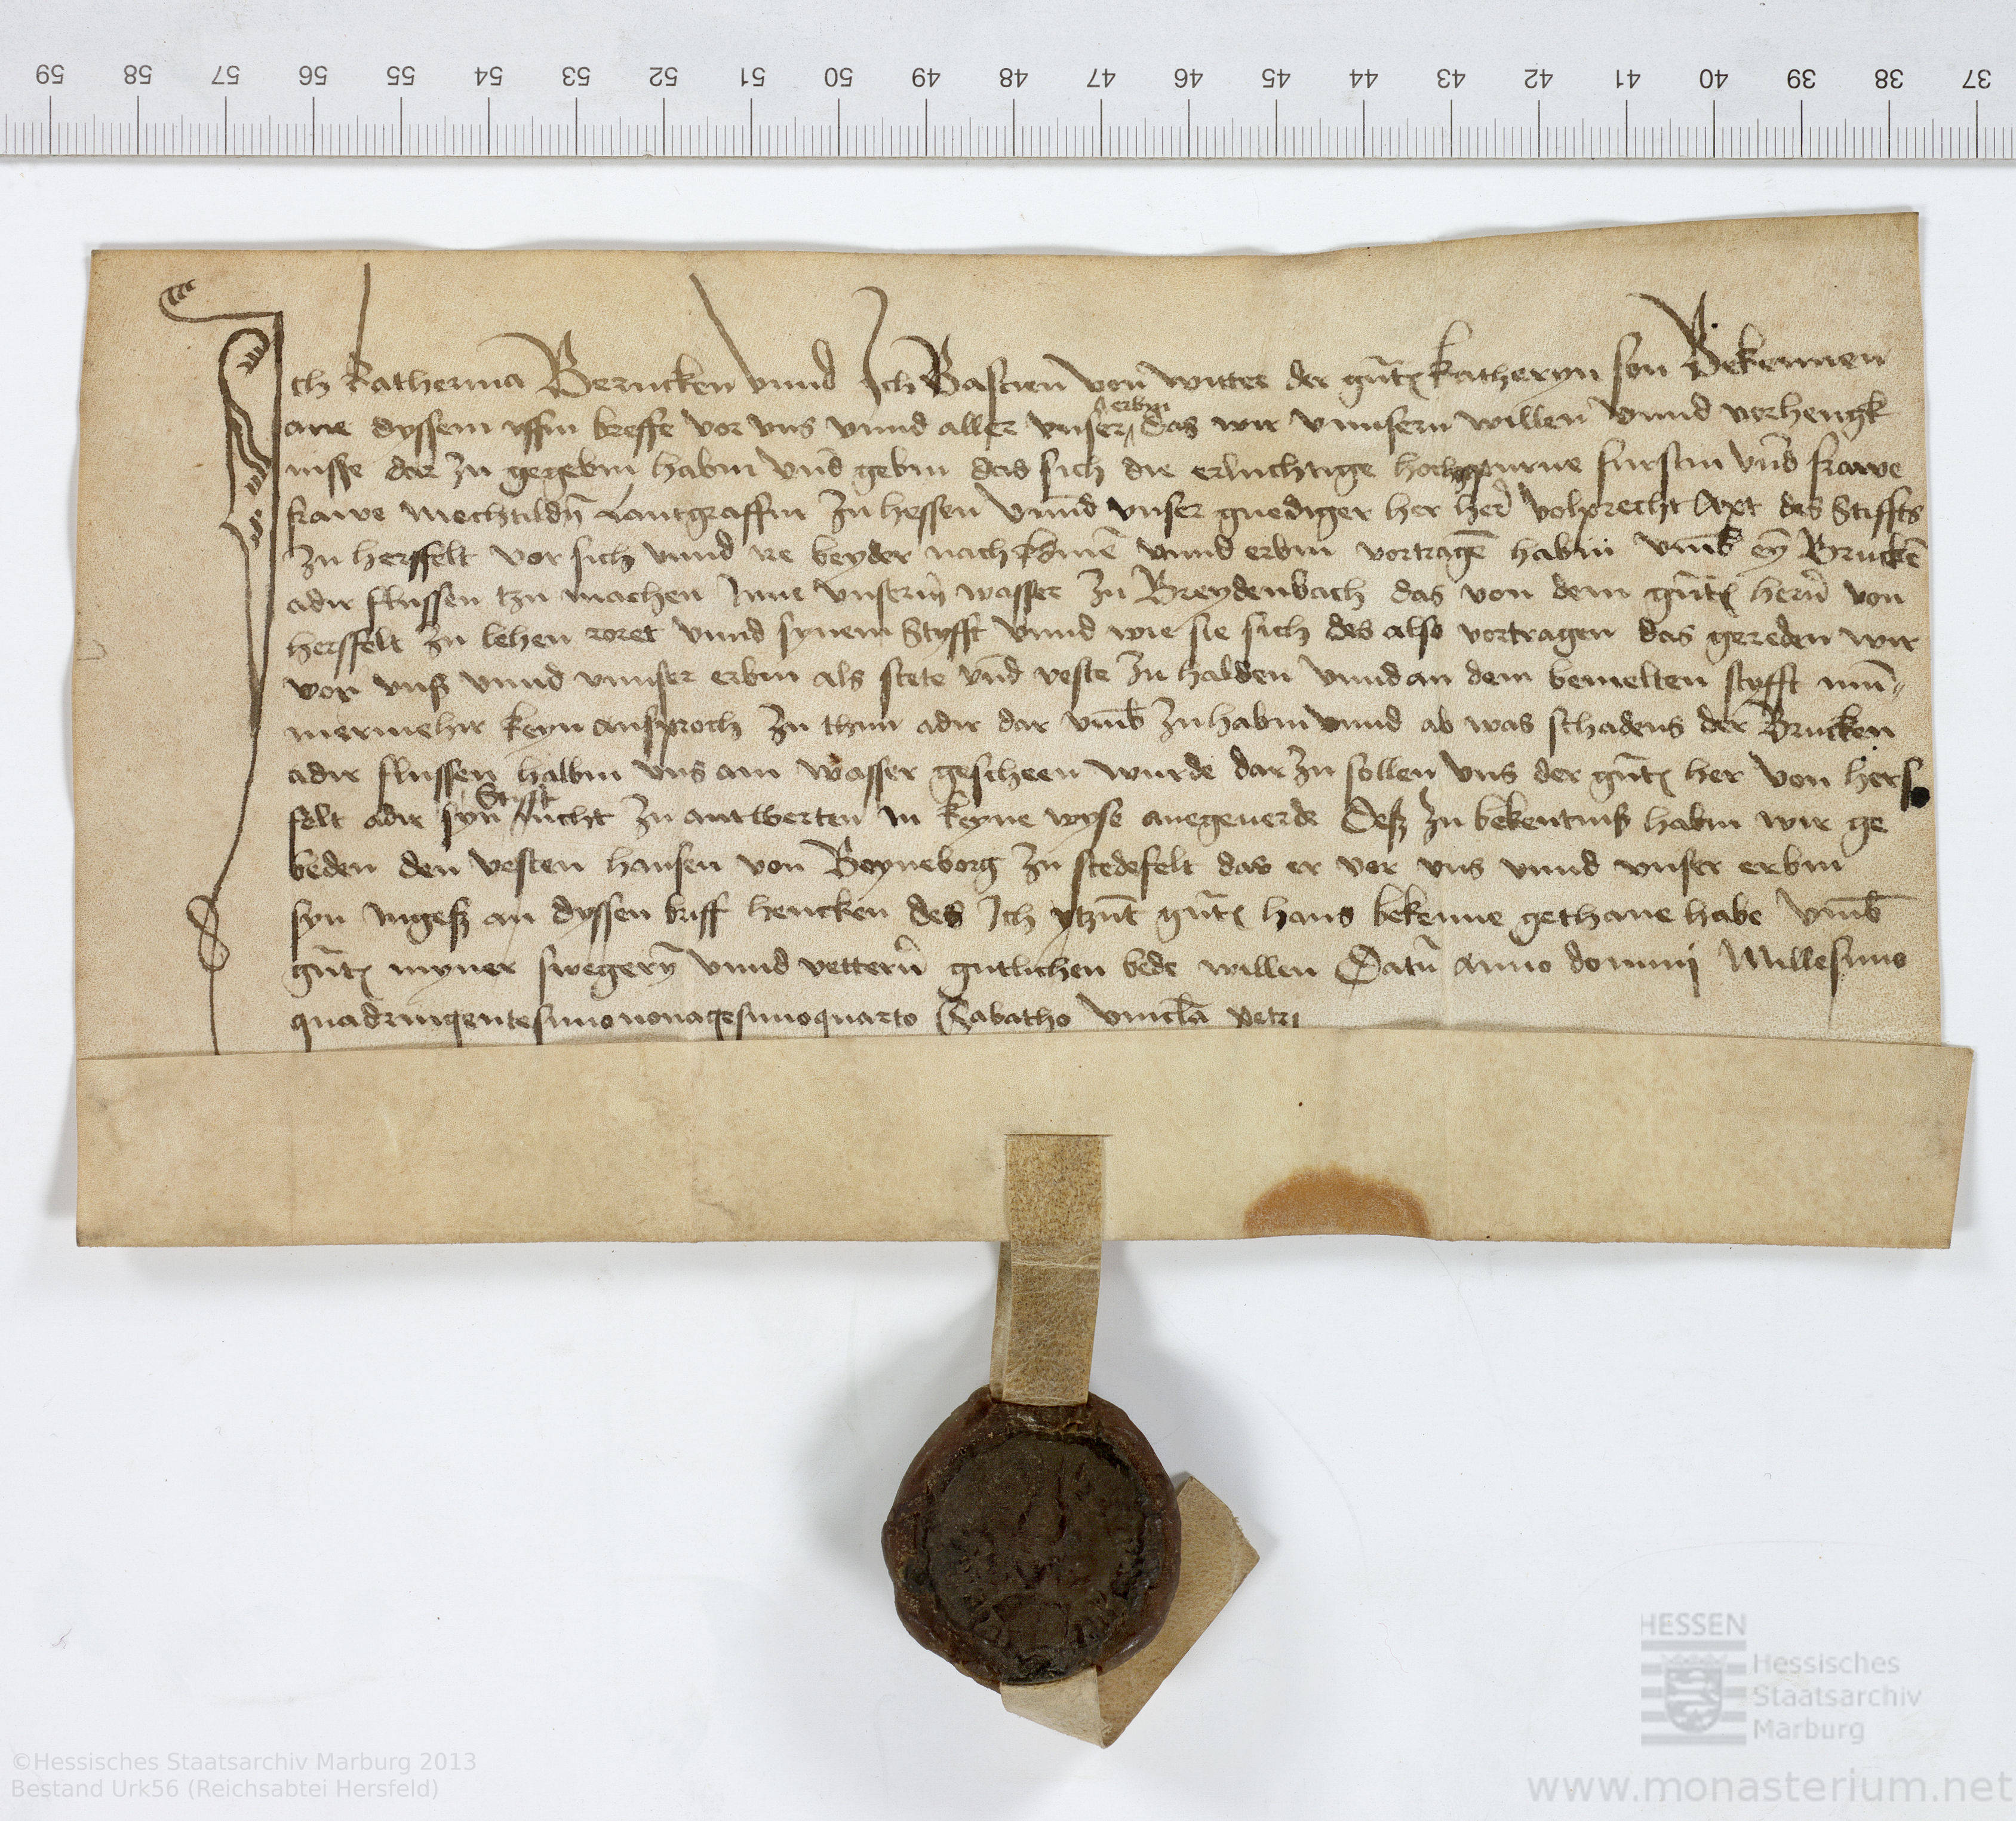 59 58 57 56 55 54 53 52 51 50 49 48 47 46 45 44 43 42 41 40 39 38 37
Ich Katherina Berucken vnnd Ich Bastien von witter der gnt̃ katheryn son Bekennen
ane dyssem uffin breffe vor vns vnnd aller vnser erbin das wir vnnsern willen vnnd vorhengk
nisse dar zu gegebin habin vnd̃ gebin das sich die erluchtige hochgepurne furstin vnd̃ frawe
frawe Mechtildỹ Lantgraffin zu hessen vnnd vnser gnediger her her̃ volprecht Apt des Stiffts
zu hersfelt vor sich vnnd ire beyder nachkõmẽ vnnd erbin vortragẽ habin vm̃b eyñ Bruckẽ
adir flussen tzu machen Inne vnserm̃ wasser zu Breydenbach das von dem gnt̃ hern̄ von
hersfelt zu lehen roret vnnd synem Styfft vnnd wie sie sich des also vortragen das gereden wir
vor vnß vnnd vnnser erbin als stete vnd̃ veste zu halden vnnd an dem bemelten styfft nun̄
mermehir keyn ansproch zu thun adir dar vm̃b zu habin vnnd ab was schadens der Brucken
adir flussen halbin vns am wasser gescheen wurde dar zu sollen vns der gnt̃ her von hers
felt adir syn Stifft nicht zu antwerten in keyne wyse anegeuerde Deß zu bekentniß habin wir ge
beden den vesten hansen von Boyneborg zu stedefelt das er vor vns vnnd vnser erbin
syn ingeß an dyssen briff hencken des Ich ytzũt gnt̃ hans bekenne gethane habe vm̃b
gnt̃ myner swegerỹ vnnd vettern̄ gutlichen bede willen Datũ Anno domini Millesimo
quadringentesimo nonagesimoquarto Sabatho vincl̃a petri
HESSEN
Hessisches
Staatsarchiv
Marburg
©Hessisches Staatsarchiv Marburg 2013
Bestand Urk56 (Reichsabtei Hersfeld)
www.monasterium.net